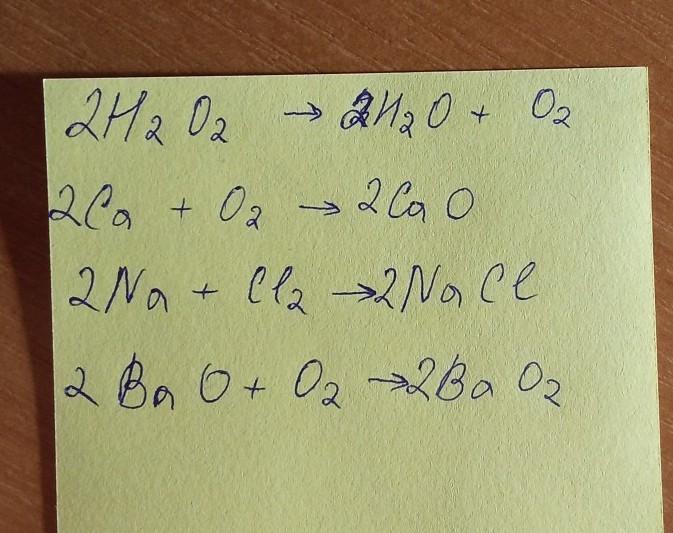 2H₂O₂ → 2H₂O + O₂
2Ca + O₂ → 2CaO
2Na + Cl₂ → 2NaCl
2BaO + O₂ → 2BaO₂